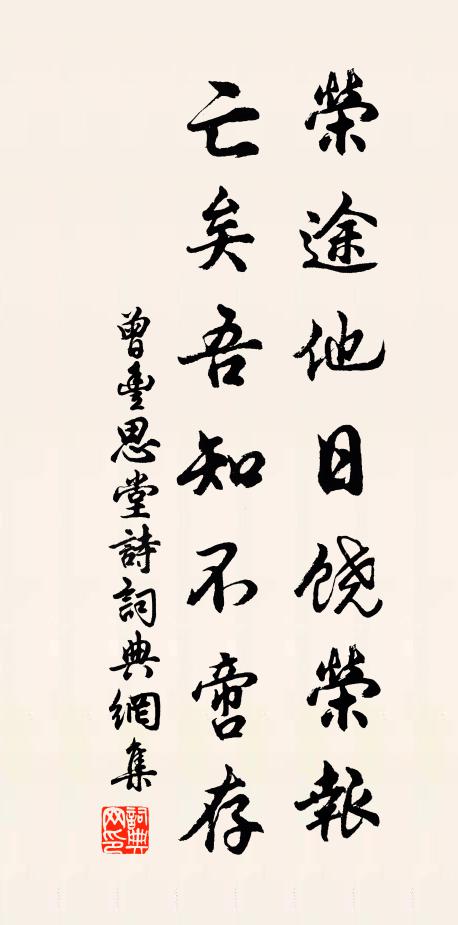 荣途他日饶荣報
亡矣吾知不啻存
曾豊思堂詩詞典網集
詞典網印